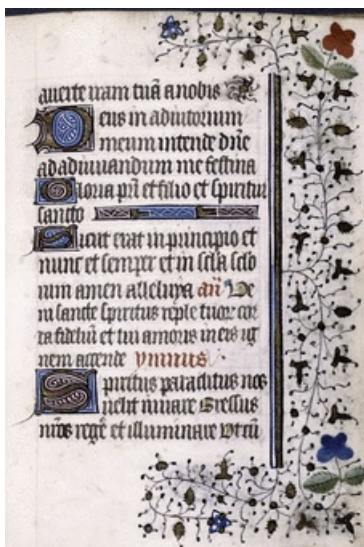 auerte iram tuā a nobis
Deus in adiutorium
meum intende dn̄e
ad adiuuandum me festina
Gloria pr̄i et filio et spiritui
sancto
Sicut erat in principio et
nunc et semper et in scl̄a sclo
rum amen alleluya añ Ve
ni sancte spiritus reple tuor̄ cor
da fideliū et tui amoris in eis ig
nem accende ymnus
Spiritus paraclitus nos
uelit iuuare Gressus
nr̄os rege et illuminare Vt cū